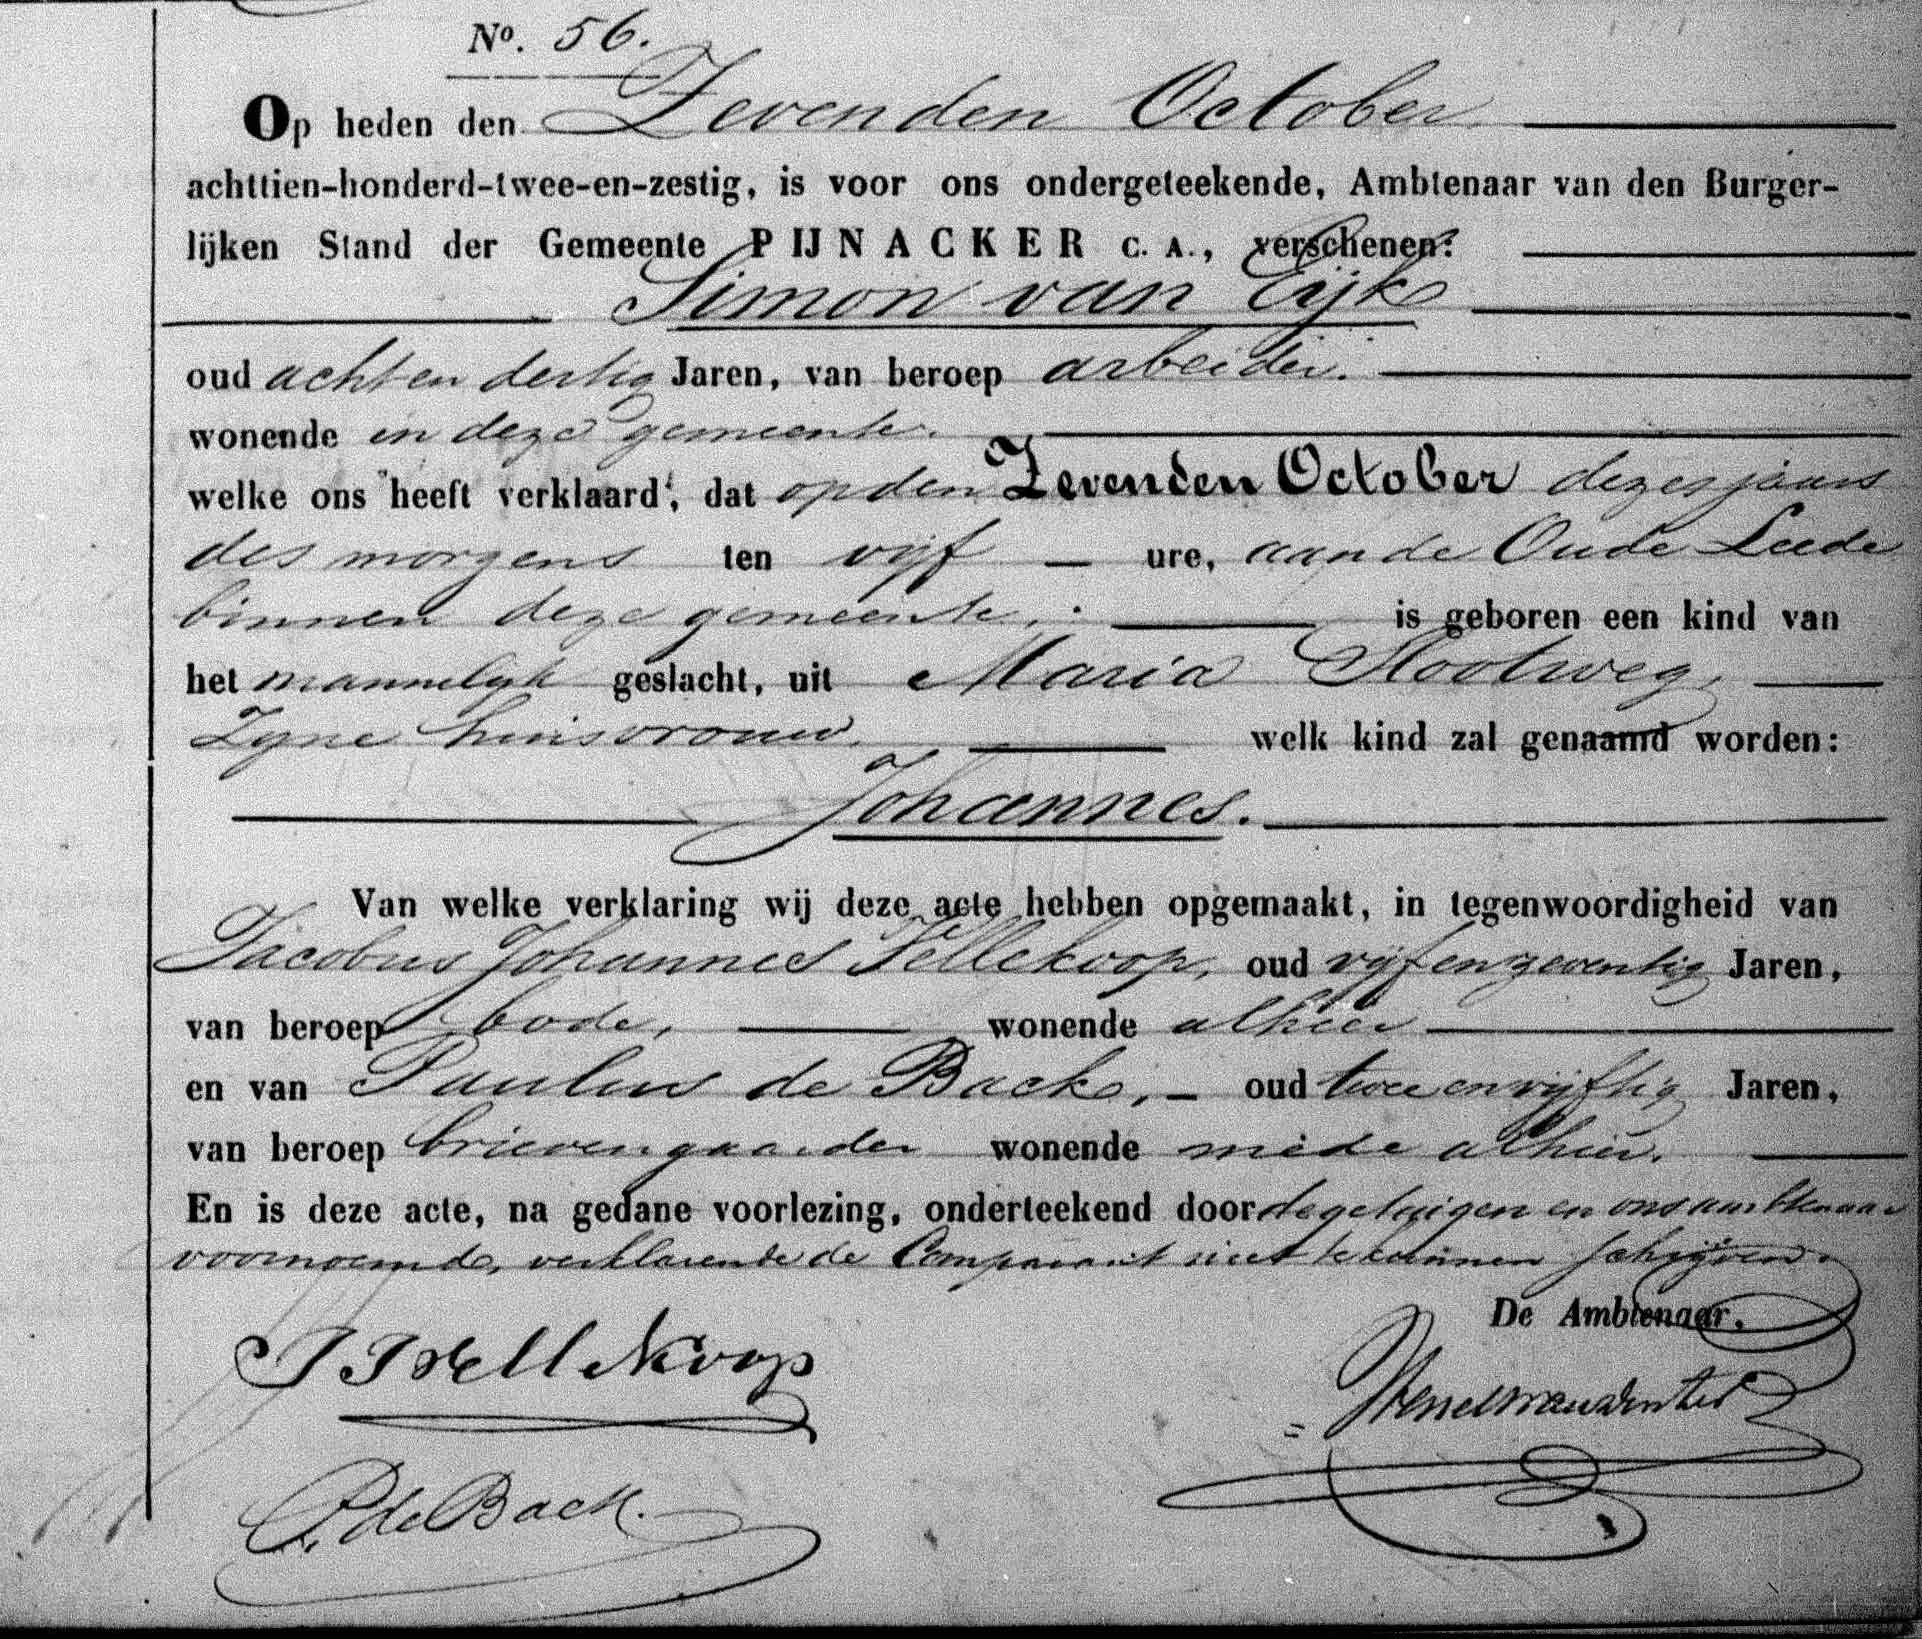 No. 56.
Op heden den Zevenden October
achttien-honderd-twee-en-zestig, is voor ons ondergeteekende, Ambtenaar van den Burger-
lijken Stand der Gemeente PIJNACKER C. A., verschenen:
Simon van Eijk
oud acht en dertig Jaren, van beroep arbeider.
wonende in deze gemeente.
welke ons heeft verklaard, dat op den Zevenden October dezes jaars
des morgens ten vijf ure, aan de Oude Leede
binnen deze gemeente, is geboren een kind van
het mannelijk geslacht, uit Maria Slootweg,
Zyne huisvrouw, welk kind zal genaamd worden:
Johannes.
Van welke verklaring wij deze acte hebben opgemaakt, in tegenwoordigheid van
Jacobus Johannes Tellekoop, oud vijfenzeventig Jaren,
van beroep bode, wonende alhier
en van Paulus de Back, oud twee en vijftig Jaren,
van beroep brievengaarder wonende mede alhier.
En is deze acte, na gedane voorlezing, onderteekend door de getuigen en ons ambtenaar
voornoemd, verklarende de Comparant niet te kunnen schrijven.
De Ambtenaar.
J J Tellekoop
P. de Back.